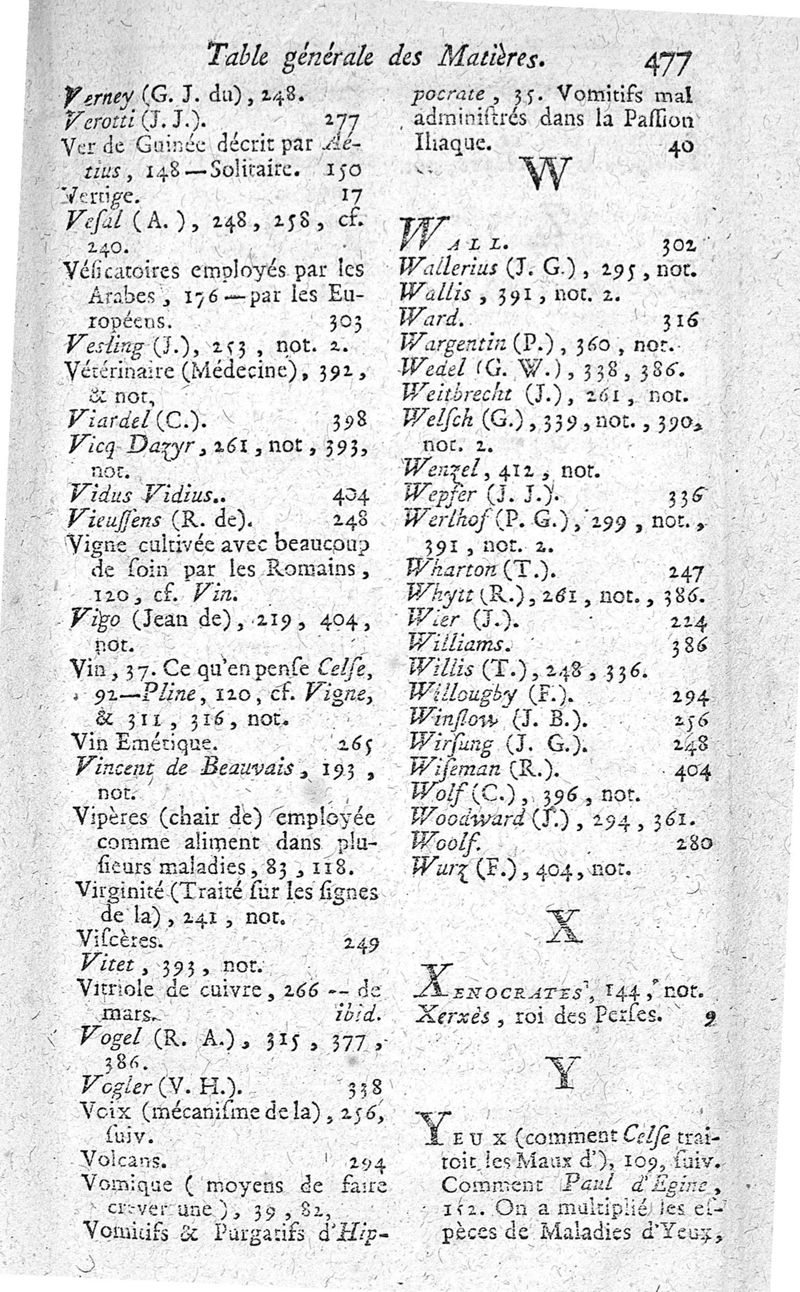 Table générale des Matières. 477
Verney (G. J. du), 248.
Verotti (J. J.). 277
Ver de Guinée décrit par Aë-
tius, 148 — Solitaire. 150
Vertige. 17
Veſal (A.), 248, 258, cf.
240.
Véſicatoires employés par les
Arabes, 176 — par les Eu-
ropéens. 303
Vesling (J.), 253, not. 2.
Vétérinaire (Médecine), 392,
& not,
Viardel (C.). 398
Vicq Dazyr, 261, not, 393,
not.
Vidus Vidius.. 404
Vieuſſens (R. de). 248
Vigne cultivée avec beaucoup
de ſoin par les Romains,
120, cf. Vin.
Vigo (Jean de), 219, 404,
not.
Vin, 37. Ce qu'en penſe Celſe,
92 — Pline, 120, cf. Vigne,
& 311, 316, not.
Vin Emétique. 265
Vincent de Beauvais, 193,
not.
Vipères (chair de) employée
comme aliment dans plu-
ſieurs maladies, 83, 118.
Virginité (Traité ſur les ſignes
de la), 241, not.
Viſcères. 249
Vitet, 393, not.
Vitriole de cuivre, 266 -- de
mars. ibid.
Vogel (R. A.), 315, 377,
386.
Vogler (V. H.). 338
Voix (mécaniſme de la), 256,
ſuiv.
Volcans. 294
Vomique ( moyens de faire
crever une), 39, 82,
Vomitifs & Purgatifs d'Hip-
pocrate, 35. Vomitifs mal
adminiſtrés dans la Paſſion
Iliaque. 40
W
WALL. 302
Wallerius (J. G.), 295, not.
Wallis, 391, not. 2.
Ward. 316
Wargentin (P.), 360, not.
Wedel (G. W.), 338, 386.
Weitbrecht (J.), 261, not.
Welſch (G.), 339, not., 390,
not. 2.
Wenzel, 412, not.
Wepfer (J. J.). 336
Werlhof (P. G.), 299, not.,
391, not. 2.
Wharton (T.). 247
Whytt (R.), 261, not., 386.
Wier (J.). 224
Williams. 386
Willis (T.), 248, 336.
Willougby (F.). 294
Winſlow (J. B.). 256
Wirſung (J. G.). 248
Wiſeman (R.). 404
Wolf (C.), 396, not.
Woodward (J.), 294, 361.
Woolf. 280
Wurz (F.), 404, not.
X
XENOCRATES, 144, not.
Xerxès, roi des Perſes. 9
Y
YEUX (comment Celſe trai-
toit les Maux d'), 109, ſuiv.
Comment Paul d'Egine,
152. On a multiplié les eſ-
pèces de Maladies d'Yeux,